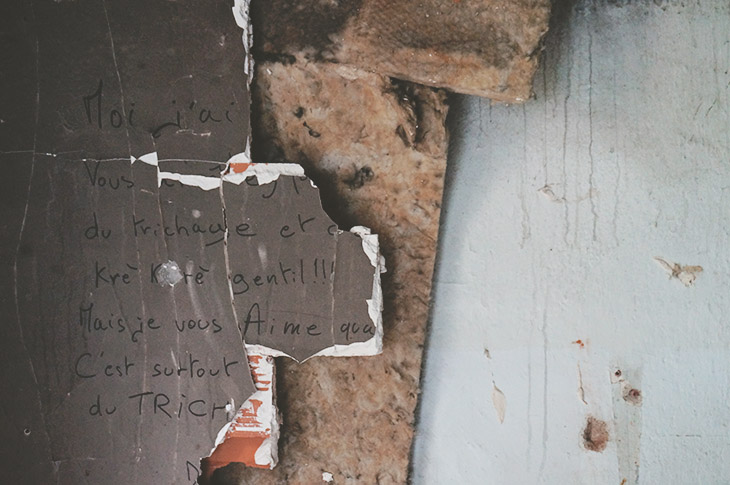 Moi j'ai
Vous
du trichage et
Krè Krè gentil!!!
Mais je vous Aime qua
C'est surtout
du TRICH